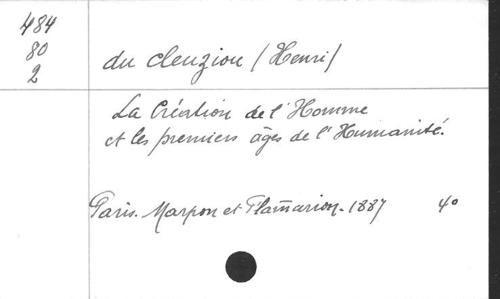 484
80
2
du Cleuziou (Henri)
La Création de l'Homme
et les premiers âges de l'Humanité.
Paris. Marpon et Flam̄arion. 1887 4°